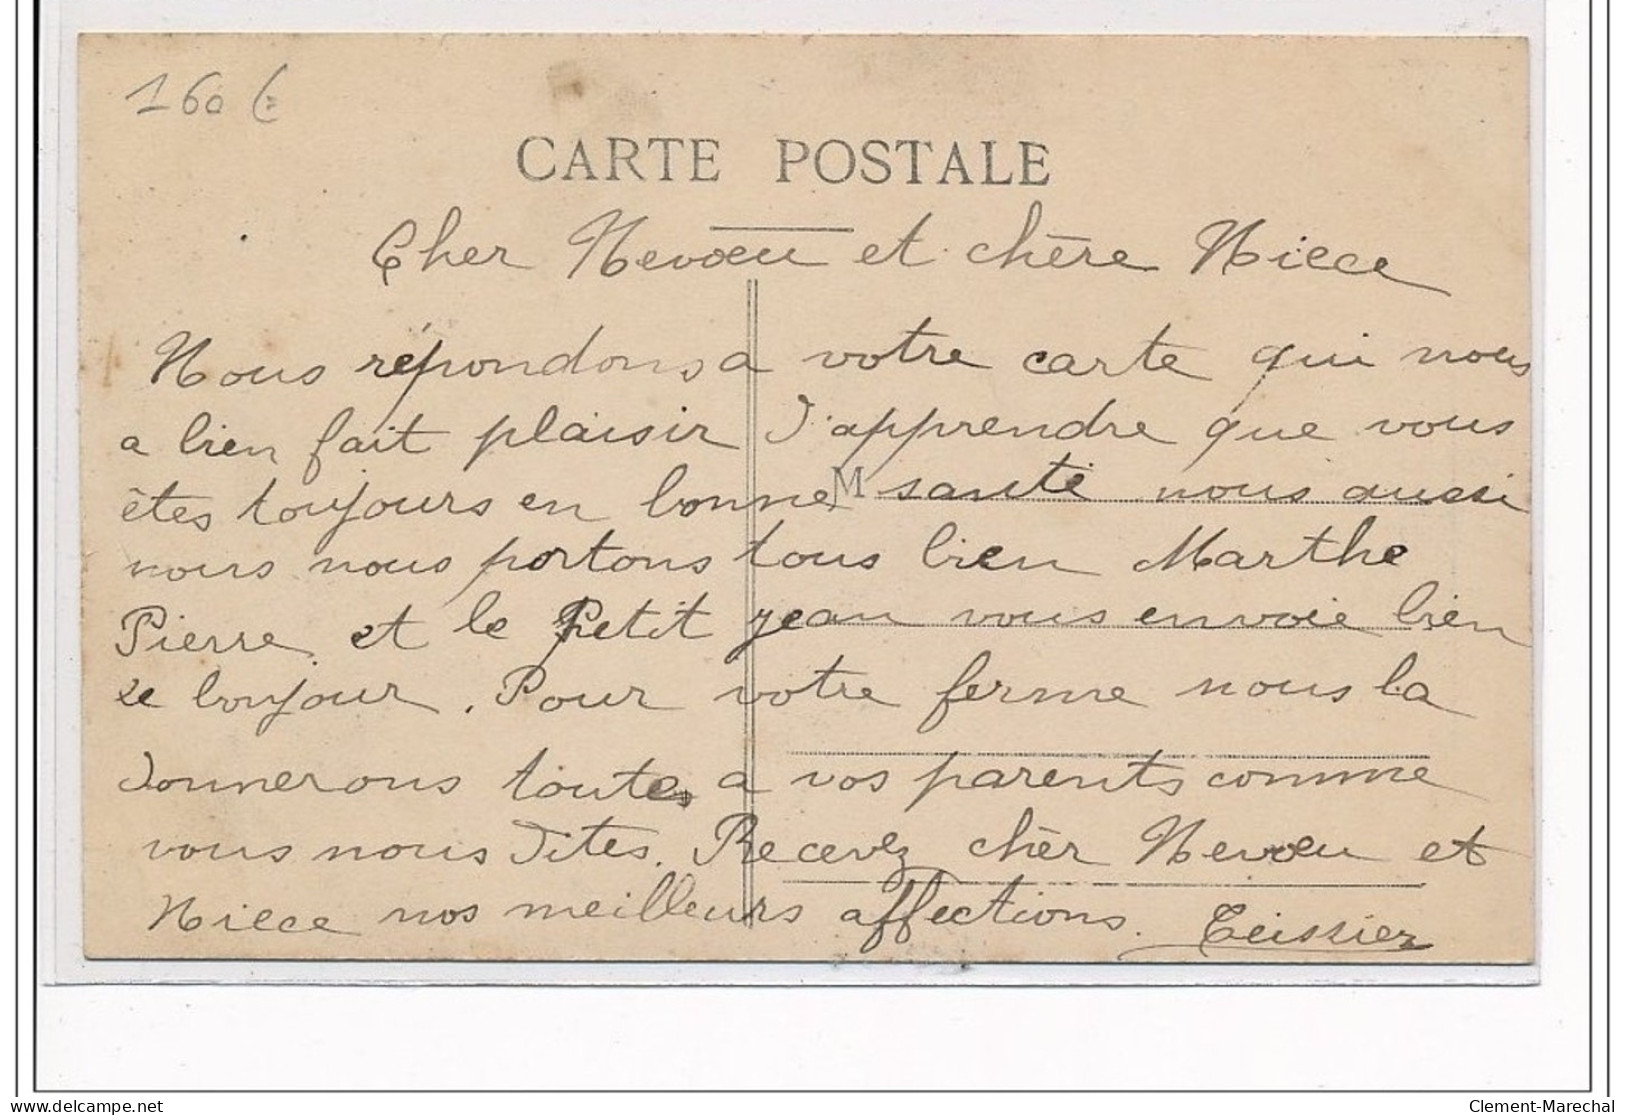 160 €
CARTE POSTALE
Cher Nevœu et chère Nièce
Nous répondons a votre carte qui nous
a bien fait plaisir d'apprendre que vous
êtes toujours en bonne M santé nous aussi
nous nous portons tous bien Marthe
Pierre et le Petit jean vous envoie bien
le bonjour. Pour votre ferme nous la
donnerons toutes a vos parents comme
vous nous dites. Recevez chèr Nevœu et
Nièce nos meilleurs affections. Teissier
delcampe.net
Clement-Marechal